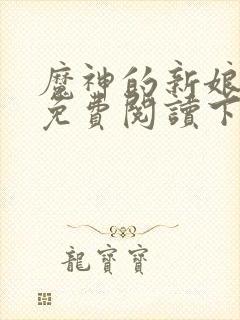 魔神的新娘
免費閱讀下
龍寶寶